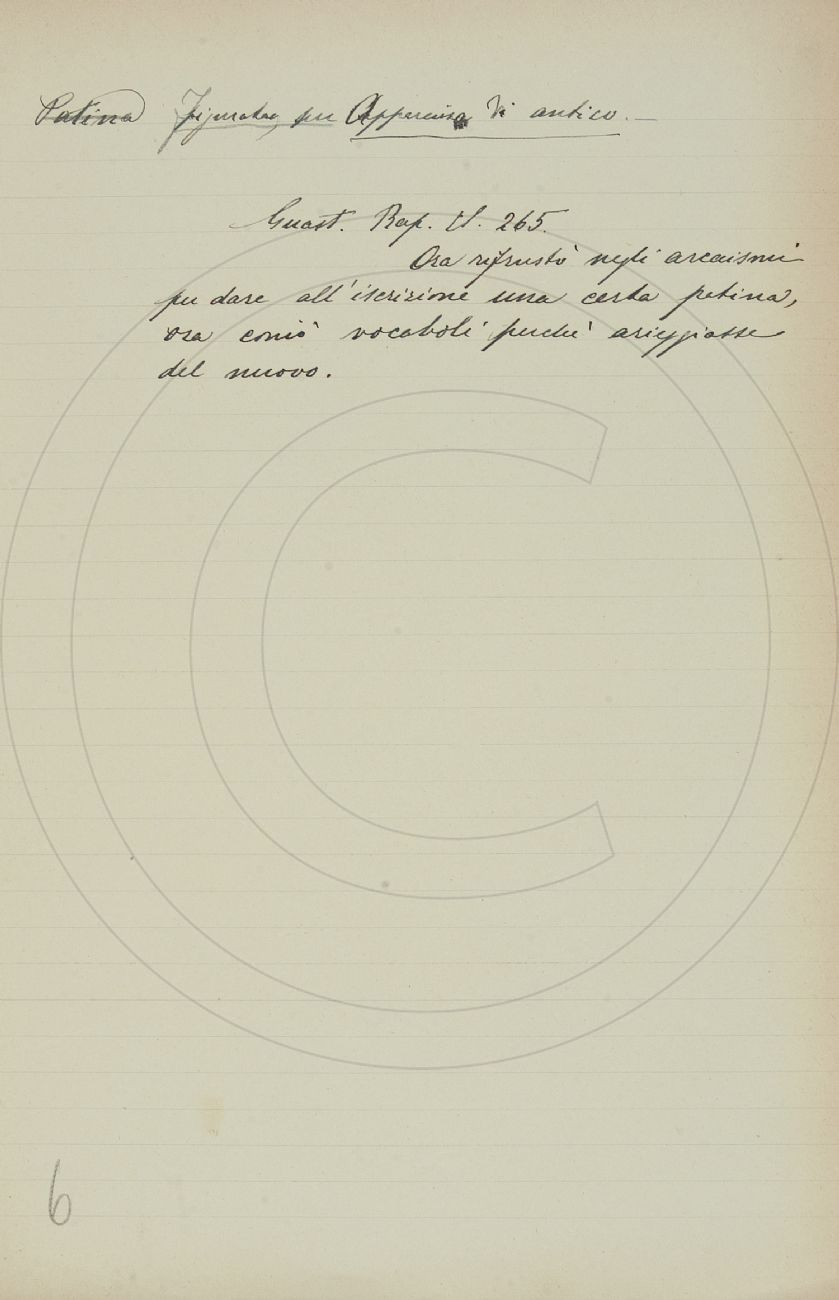 Patina Figuratae, per Apparenza di antico. —
Guast. Rap. Il. 265.
Ora rifrustò negli arcaismi
per dare all'iscrizione una certa patina,
ora coniò vocaboli perchè arieggiasse
del nuovo.
6